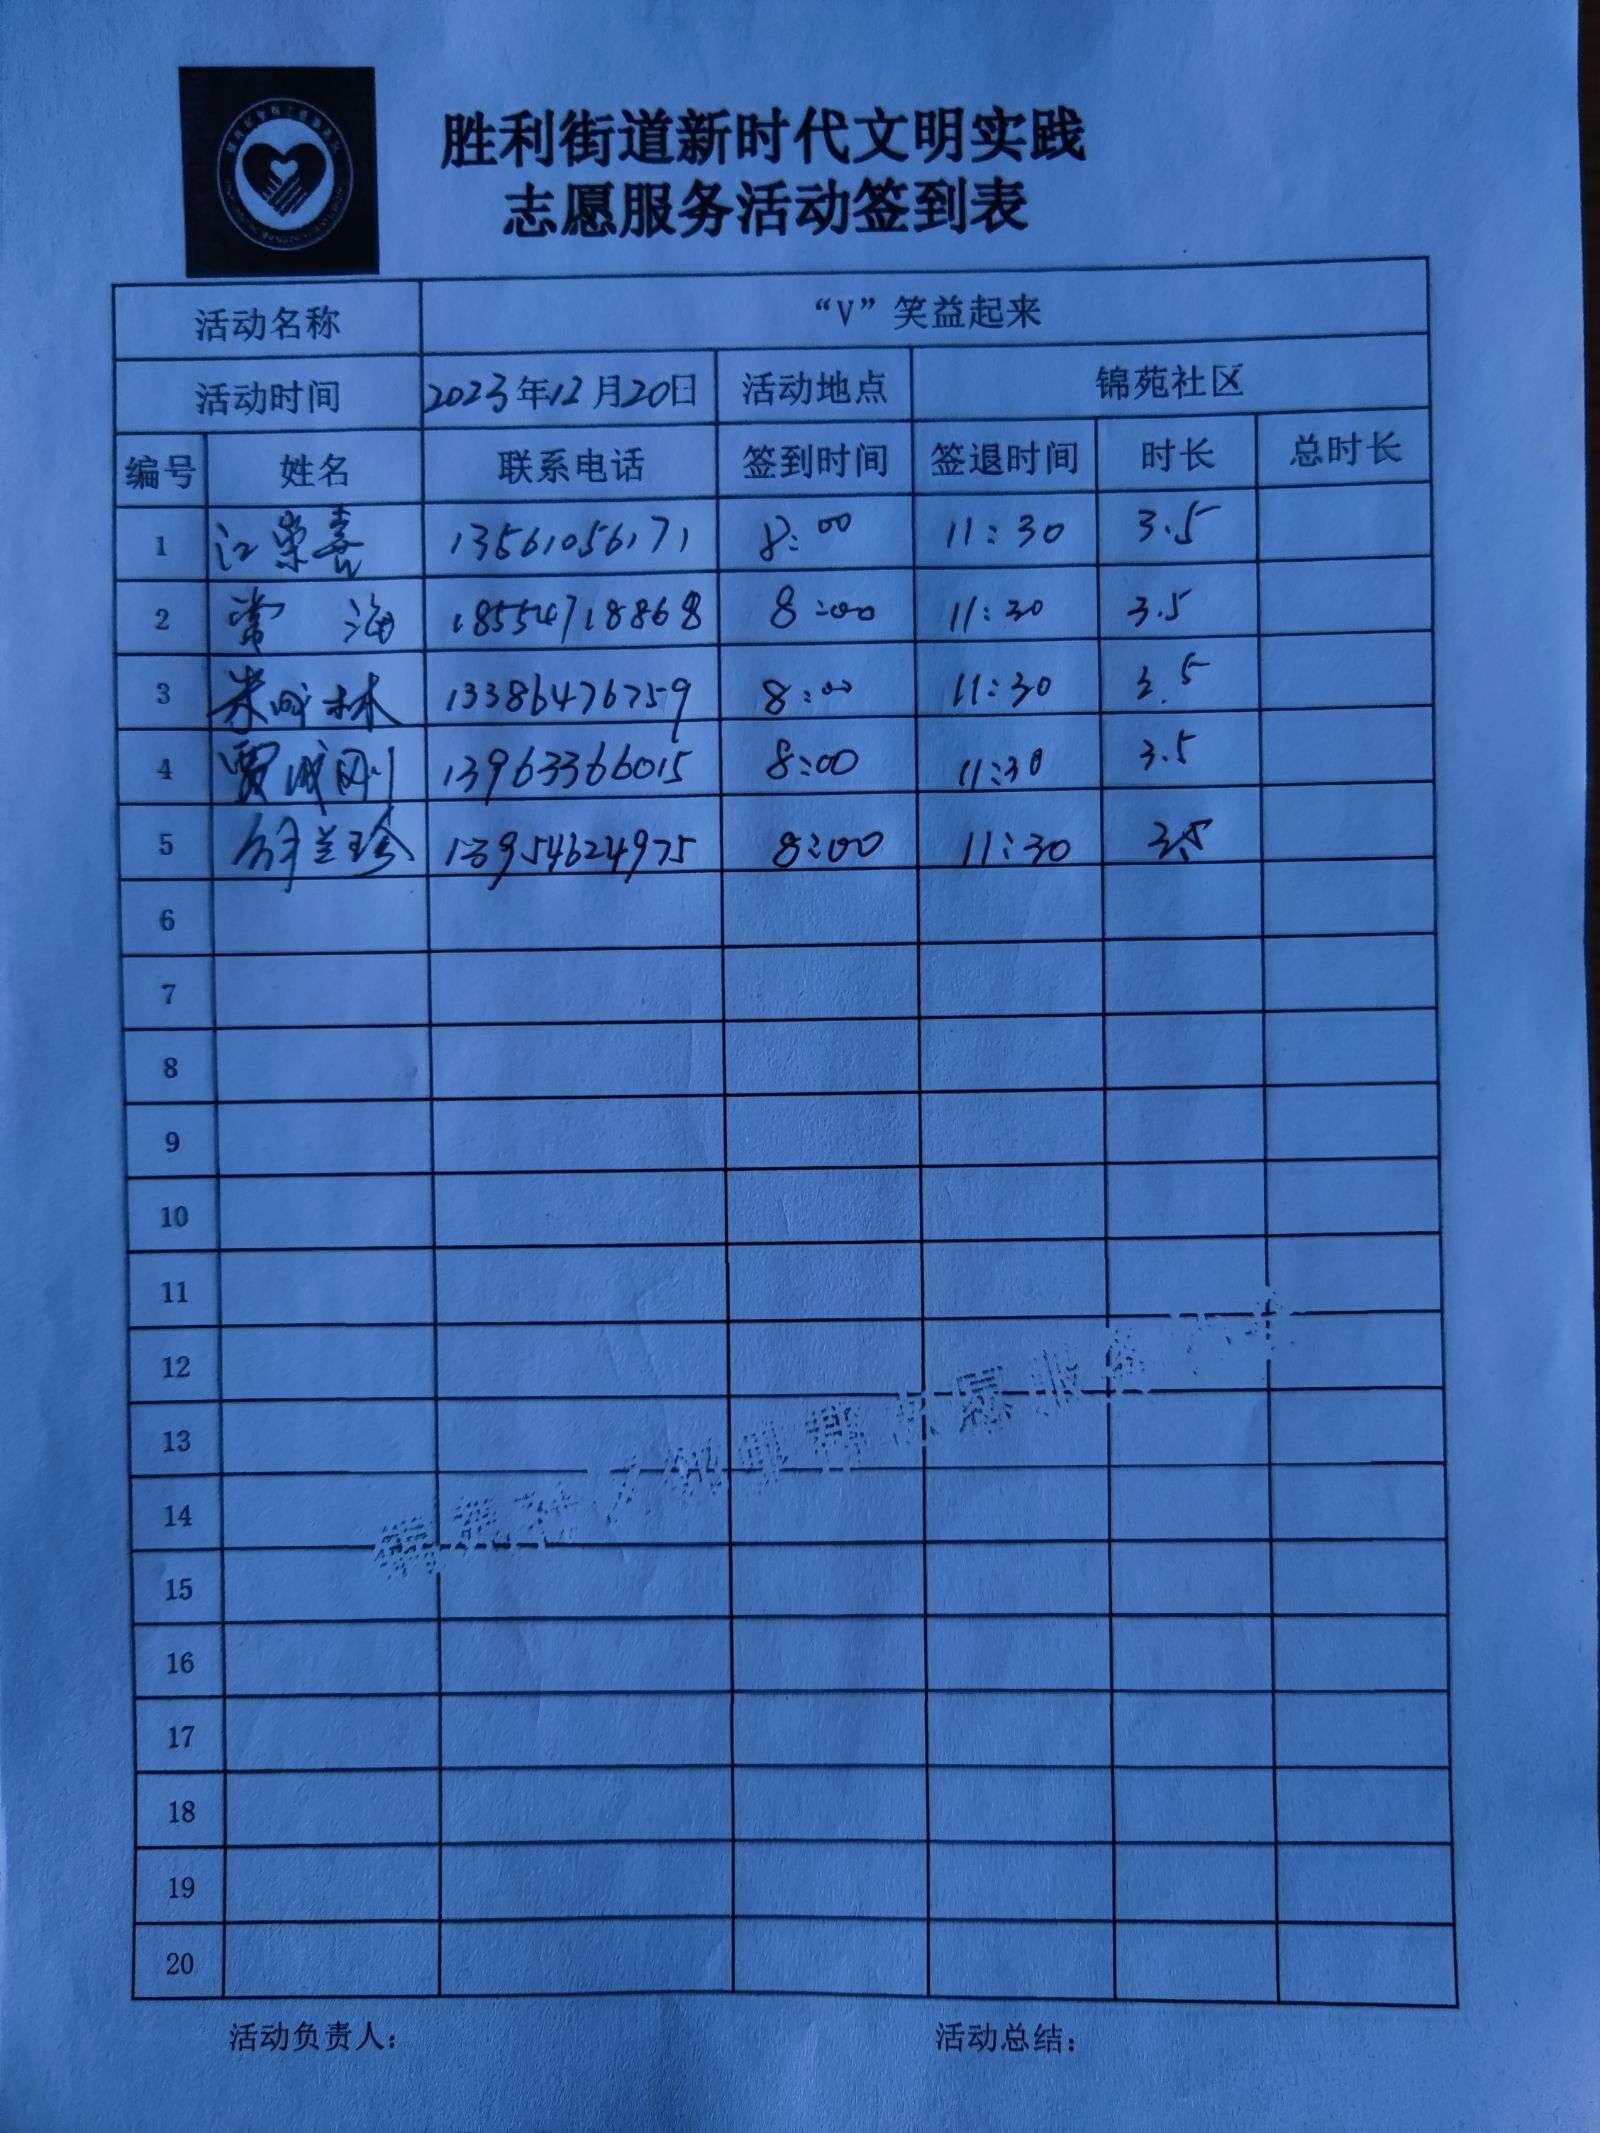 胜利街道新时代文明实践
志愿服务活动签到表
活动名称 “V”笑益起来
活动时间 2023年12月20日 活动地点 锦苑社区
编号 姓名 联系电话 签到时间 签退时间 时长 总时长
1 江荣喜 13561056171 8:00 11:30 3.5
2 常海 18554718868 8:00 11:30 3.5
3 米成林 13386476759 8:00 11:30 3.5
4 贾成刚 13963366015 8:00 11:30 3.5
5 兰珍 13954624975 8:00 11:30 3.5
6
7
8
9
10
11
12
13
14
15
16
17
18
19
20
活动负责人： 活动总结：